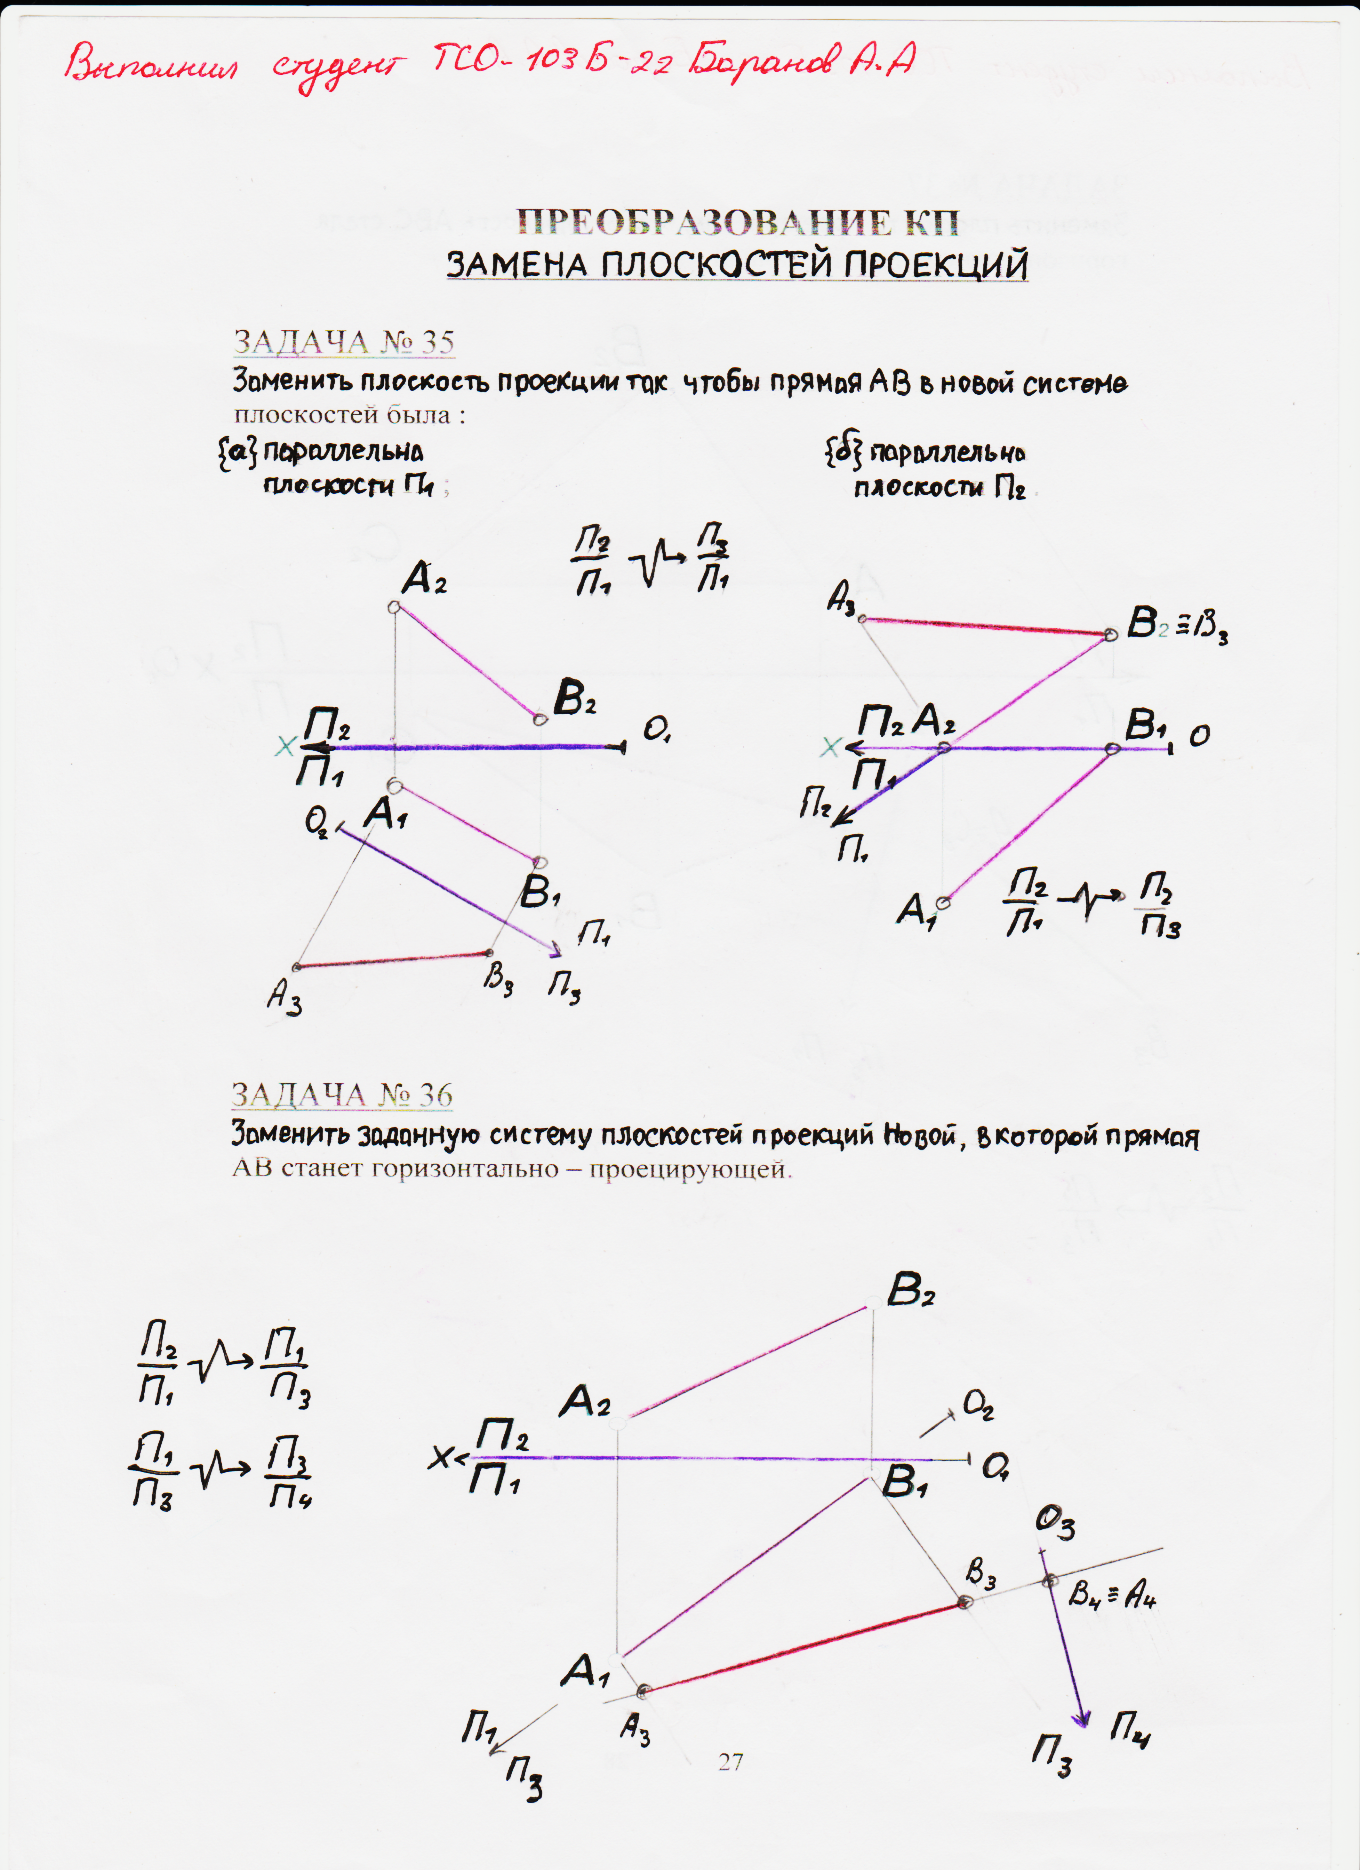 Выполнил студент ТСО-103Б-22 Баранов А.А
ПРЕОБРАЗОВАНИЕ КП
ЗАМЕНА ПЛОСКОСТЕЙ ПРОЕКЦИЙ
ЗАДАЧА № 35
Заменить плоскость проекции так чтобы прямая АВ в новой системе
плоскостей была :
{а} параллельна
плоскости П1 ;
{б} параллельно
плоскости П2 .
П2 П3
П1 П1
A2
B2
П2
X O1
П1
A1
O2
B1
П1
A3 B3 П3
A3
B2≡B3
П2 A2 B1
X O
П1
П2
П1
A1
П2 П2
П1 П3
ЗАДАЧА № 36
Заменить заданную систему плоскостей проекций Новой, в которой прямая
АВ станет горизонтально – проецирующей.
П2 П1
П1 П3
П1 П3
П3 П4
B2
A2
O2
П2
X O1
П1 B1
O3
B3
B4≡A4
A1
П1 A3 П4
П3 П3
27